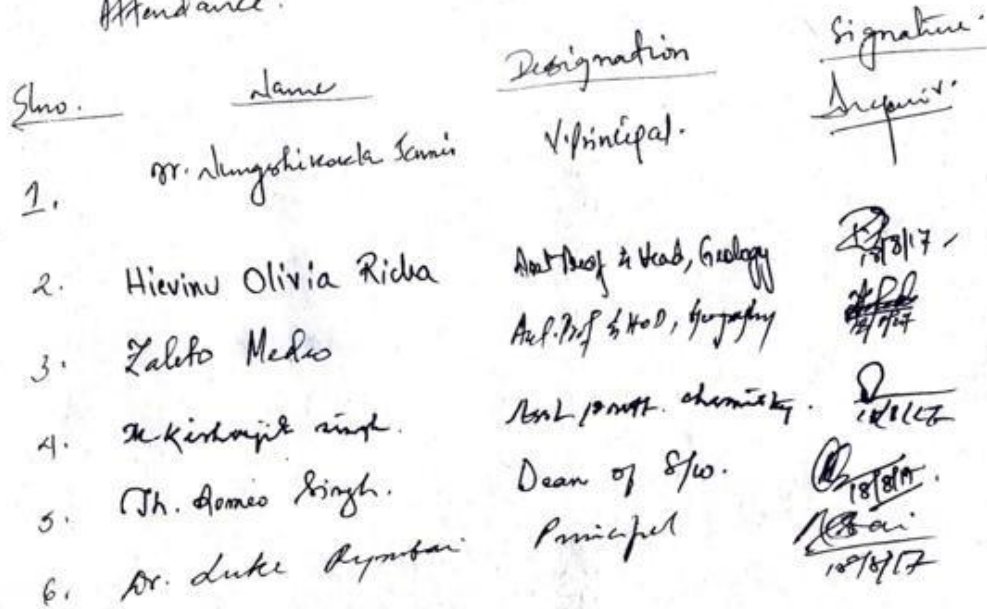 Attendance.
Slno. Name Designation Signature.
1. Dr. Nungshikocla Jamir V.Principal.
2. Hievinu Olivia Richa Asst Prof & Head, Geology 18/8/17
3. Zaleto Medeo Asst. Prof & HoD, Geography
4. Kishorjit singh. Asst proff. chemistry. 18/8/17
5. Th. Romeo Singh. Dean of S/w. 18/8/17.
6. Dr. Luke Rymbai Principal 18/8/17